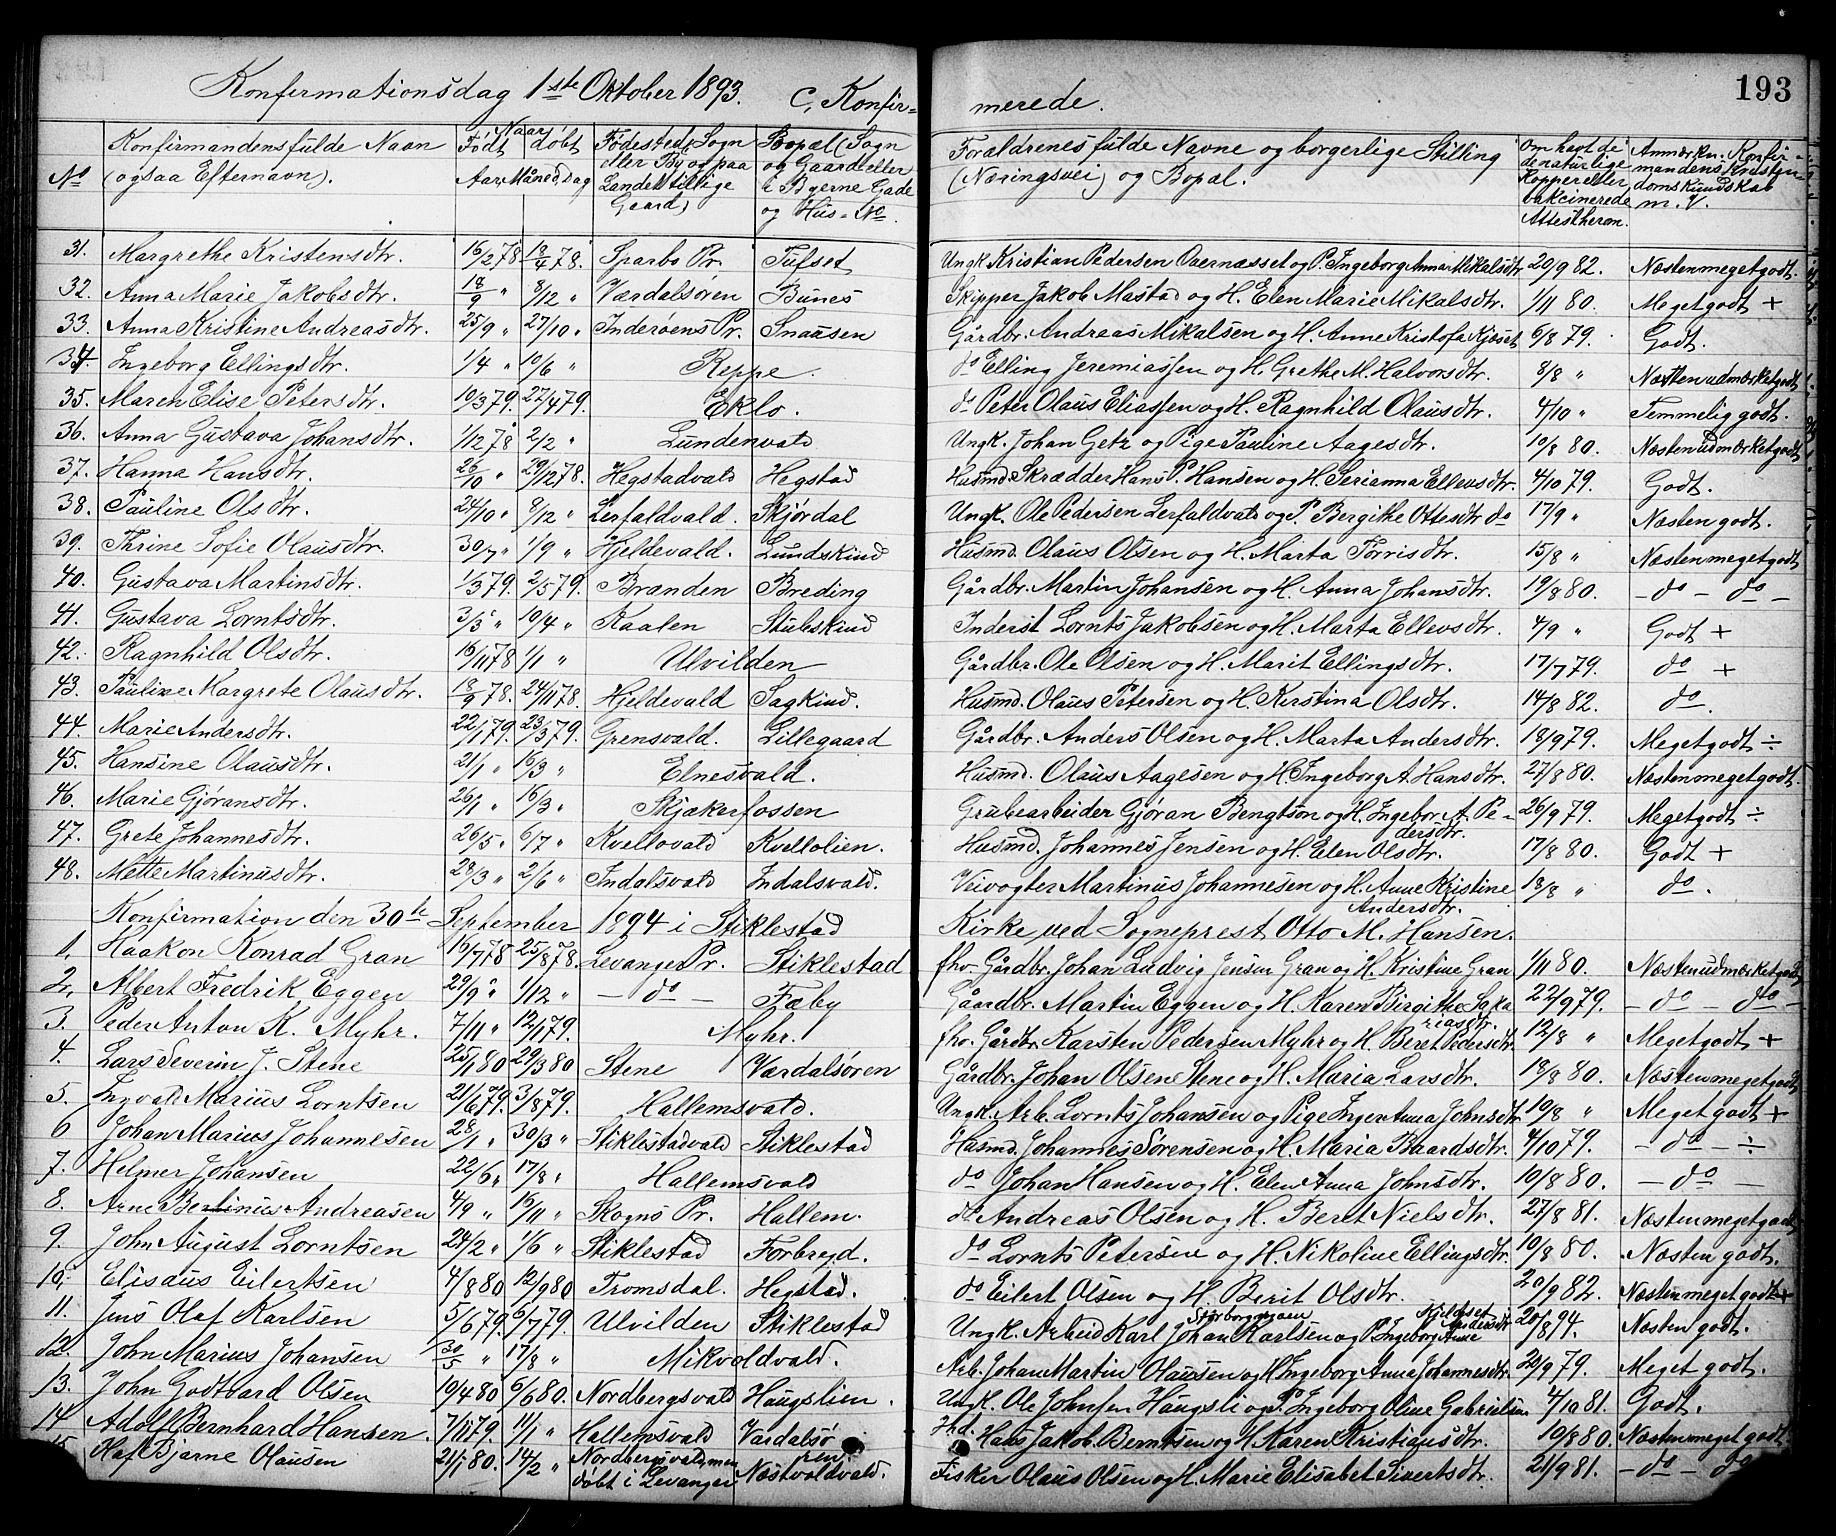 Konfirmationsdag 1ste Oktober 1893. C, Konfir= merede. 193
No Konfirmandens fulde Navn (ogsaa Efternavn). Naar Født døbt Aar, Maaned, dag Fødested, Sogn eller By og paa Landet tillige Gaard) Bopæl (Sogn og Gaard eller i Byerne Gade og Hus=No. Forældrenes fulde Navne og borgerlige Stilling (Næringsvei) og Bopæl. Om havt de naturlige Kopper eller vakcinerede Attest herom. Anmærkn. Konfir- mandens Kristen- domskundskab m. V.
31. Margrethe Kristensdtr. 16/2 78 18/4 78. Sparbo Pr. Tufset Ungk. Kristian Pedersen Overnæsset og P. Ingeborg Anna Mikalsdtr. 20/9 82. Næsten meget godt.
32. Anna Marie Jakobsdtr. 18/9 " 8/12 " Værdalsøren Bunes Skipper Jakob Mastad og H. Elen Marie Mikalsdtr. 1/11 80. Meget godt +
33. Anna Kristine Andreasdtr. 25/9 " 27/10 " Inderøens Pr. Snausen Gårdbr. Andreas Mikalsen og H. Anne Kristofa Kjæset 6/8 79. Godt.
34. Ingeborg Ellingsdtr. 1/4 " 10/6 " Reppe. do Elling Jeremiassen og H. Grethe M. Halvorsdtr. 8/8 " Næsten udmærket godt
35. Maren Elise Petersdtr. 10/3 79. 27/4 79. Eklo. do Peter Olaus Eliassen og H. Ragnhild Olausdtr. 4/10 " Temmelig godt.
36. Anna Gustava Johansdtr. 1/12 78 2/2 " Lundenvald Ungk. Johan Getz og Pige Pauline Aagesdtr. 10/8 80. Næsten udmærket godt
37. Hanna Hansdtr. 26/10 " 29/12 78. Hegstadvald Hegstad Husmd. Skrædder Hans P. Hansen og H. Serianna Ellevsdtr. 4/10 79. Godt.
38. Pauline Olsdtr. 24/10 " 8/12 " Lerfaldvald. Skjørdal Ungk. Ole Pedersen Lerfaldvald og P. Bergithe Ottesdtr do 17/9 " Næsten godt.
39. Thrine Sofie Olausdtr. 30/7 " 1/9 " Hjeldevald. Lundskind Husmd. Olaus Olsen og H. Marta Torrisdtr. 15/8 " Næsten meget godt
40. Gustava Martinsdtr. 1/3 79. 2/5 79. Branden Breding Gårdbr. Martin Johansen og H. Anna Johansdtr. 19/8 80. - do - do -
41. Gustava Lorntsdtr. 3/3 " 10/4 " Kaalen Stubskind Inderst Lornts Jakobsen og H. Marta Ellevsdtr. 4/9 " Godt +
42. Ragnhild Olsdtr. 16/11 78 1/1 " Ulvilden Gårdbr. Ole Olsen og H. Marit Ellingsdtr. 17/7 79. do +
43. Pauline Margrete Olausdtr. 18/9 78. 24/11 78. Hjeldevald Sagkind. Husmd. Olaus Petersen og H. Kerstina Olsdtr. 14/8 82. do.
44. Marie Andersdtr. 22/1 79. 23/3 79. Grensvald. Lillegaard Gårdbr. Anders Olsen og H. Marta Andersdtr. 18/9 79. Meget godt ÷
45. Hansine Olausdtr. 21/1 " 16/3 " Elnesvald. Husmd. Olaus Aagesen og H. Ingeborg A. Hansdtr. 27/8 80. Næsten meget godt.
46. Marie Gjøransdtr. 26/1 " 16/3 " Skjækerfossen Grubearbeider Gjøran Bengtson og H. Ingebor A. Pe- dersdtr. 26/9 79. Meget godt ÷
47. Grete Johannesdtr. 26/5 " 6/7 " Kvellovald Kvellolien. Husmd. Johannes Jensen og H. Elen Olsdtr. 17/8 80. Godt +
48. Mette Martinusdtr. 28/3 " 2/6 " Indalsvald Indalsvald. Veivogter Martinus Johannesen og H. Anne Kristine Andersdtr. 18/8 " do.
Konfirmation den 30te September 1894 i Stiklestad Kirke ved Sogneprest Otto M. Hansen.
1. Haakon Konrad Gran 16/7 78 25/8 78. Levanger Pr. Stiklestad fhv. Gårdbr. Johan Ludvig Jensen Gran og H. Kristine Gran 1/11 80. Næsten udmærket godt
2. Albert Fredrik Eggen 29/9 " 1/12 " - do - Fæby Gårdbr. Martin Eggen og H. Karen Birgithe Saka riasdtr. 22/9 79. - do - do -
3. Peder Anton K. Myhr. 7/11 " 12/1 79. Myhr. fhv. Gårdbr. Karsten Pedersen Myhr og H. Beret Pedersdtr. 12/8 " Meget godt +
4. Lars Severin J. Stene 25/1 80 29/3 80 Stene Værdalsøren Gårdbr. Johan Olsen Stene og H. Maria Larsdtr. 18/8 80. Næsten meget godt
5. Ingvald Marius Lorntsen 21/6 79. 3/8 79. Hallemsvald. Ungk. Arb. Lornts Johansen og Pige Inger Anna Johnsdtr 10/8 " Meget godt +
6 Johan Marius Johannesen 28/1 " 30/3 " Stiklestadvald Stiklestad Husmd. Johannes Sørensen og H. Maria Baardsdtr. 4/10 79. - do - ÷
7. Helmer Johansen 22/6 " 17/8 " Hallemsvald do Johan Hansen og H. Elen Anna Johnsdtr. 10/8 80. - do -
8. Arne Berlinius Andreasen 4/9 " 16/11 " Skogns Pr. Hallem. do Andreas Olsen og H. Beret Nielsdtr. 27/8 81. Næsten meget godt
9. John August Lorntsen 24/2 " 1/6 " Stiklestad Forbregd. do Lornts Petersen og H. Nikoline Ellingsdtr. 10/8 80. Næsten godt.
10. Elisæus Eilertsen 4/8 80 12/9 80 Tromsdal. Hegstad. do Eilert Olsen og H. Berit Olsdtr. 20/9 82. Næsten meget godt +
11. Jens Olaf Karlsen 5/6 79. 6/7 79. Ulvilden Stiklestad Ungk. Arbeid Karl Johan Karlsen og P. Ingeborg Anne 20/8 94. Næsten godt.
12. John Marius Johansen 30/5 " 17/8 " Mikvoldvald. Arb. Johan Martin Olausen og H. Ingeborg Anna Johannesdtr. 20/9 79. Meget godt.
13. John Godtvard Olsen 19/4 80 6/6 80. Nordbergsvald Haugslien. Ungk. Ole Johnsen Haugsli og P. Ingeborg Oline Gabrielsen 4/10 81. Godt.
14. Adolf Bernhard Hansen. 7/11 79. 11/1 " Hallemsvald Værdalsø ren. Hd. Hans Jakob Berntsen og H. Karen Kristiansdtr. 10/8 80. Næsten meget godt
15. Bjarne Olausen 21/1 80. 14/2 " Nordbergsvald, men døbt i Levanger Næstvoldvald. Fisker Olaus Olsen og H. Marie Elisabet Sivertsdtr. 21/9 81. - do - do